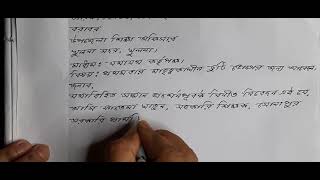 বরাবর
উপজেলা শিক্ষা অফিসার
খুলনা সদর, খুলনা।
মাধ্যম: যথাযথ কর্তৃপক্ষ।
বিষয়: প্রথমবার মাতৃত্বকালীন ছুটি ভোগের জন্য আবেদন
জনাব,
যথাবিহিত সম্মান প্রদর্শনপূর্বক বিনীত নিবেদন এই যে,
আমি ফাতেমা খাতুন, সহকারি শিক্ষক, সোনাপুর
সরকারি প্রাথ